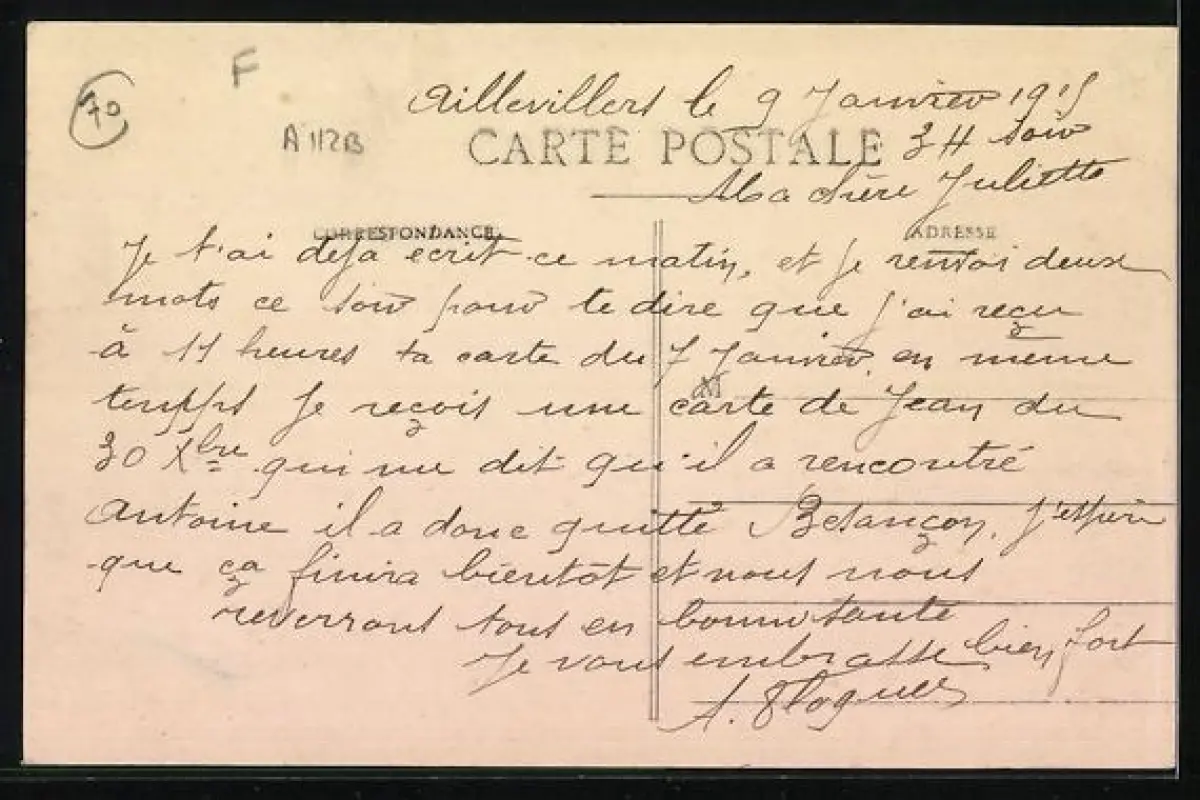 70
F
A 112B
Aillevillers le 9 Janvier 1915
CARTE POSTALE
3 H soir
Ma chère Juliette
CORRESPONDANCE
ADRESSE
Je t'ai déja écrit ce matin, et je renvoi deux
mots ce soir pour te dire que j'ai reçu
à 11 heures ta carte du 7 Janvier, en même
temps je reçois une carte de Jean du
30 Xbre qui me dit qu'il a rencontré
Antoine il a donc quitté Besançon, j'espère
que ça finira bientôt et nous nous
reverrons tous en bonne santé
Je vous embrasse bien fort
A.